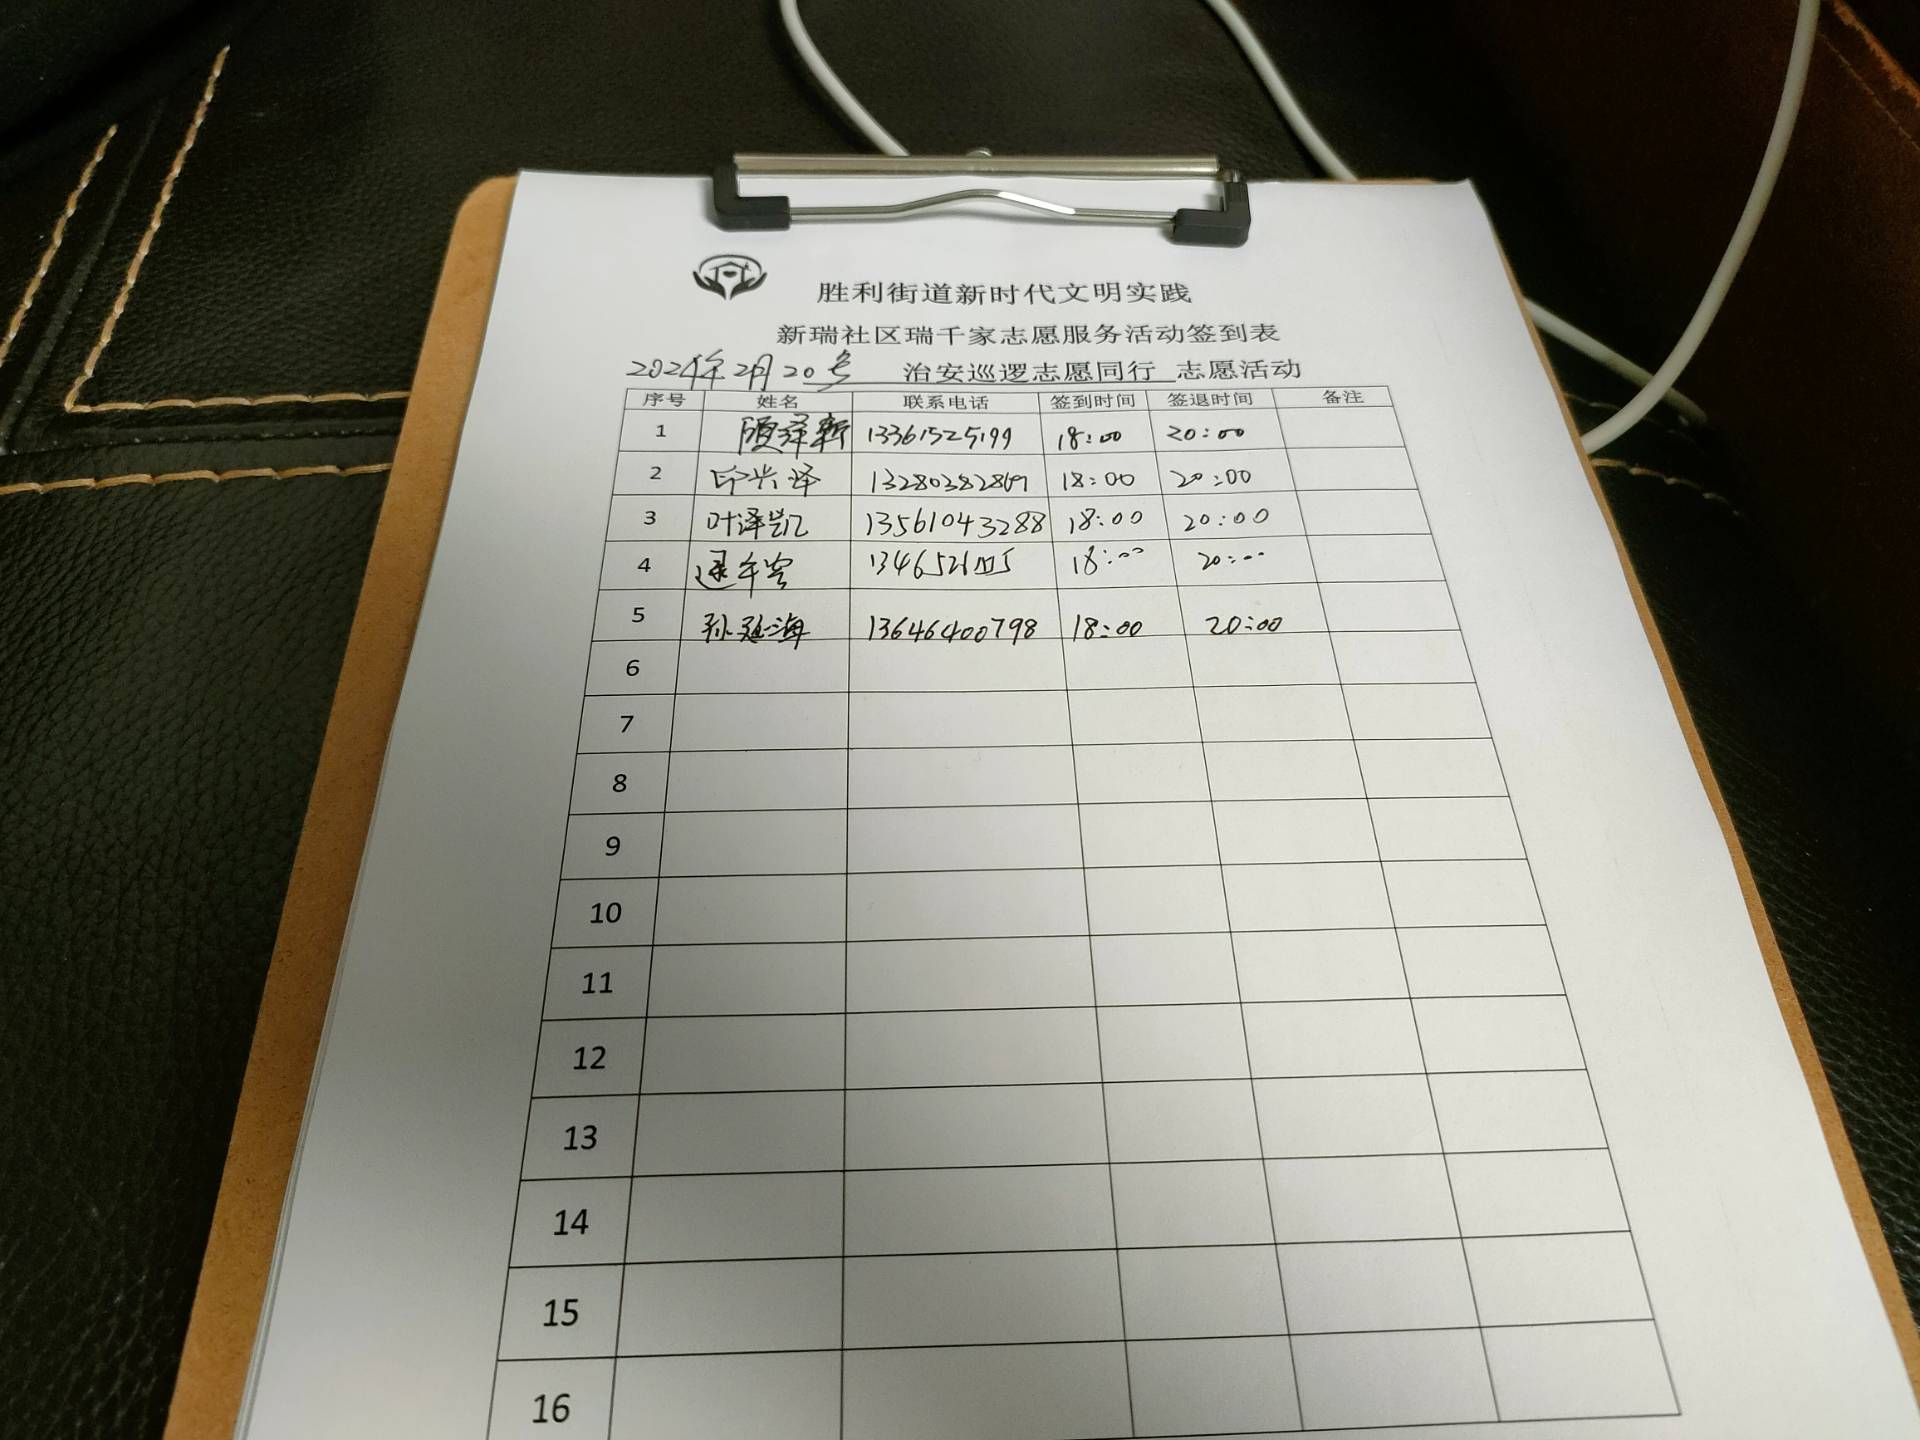 胜利街道新时代文明实践
新瑞社区瑞千家志愿服务活动签到表
2024年2月20号 治安巡逻志愿同行 志愿活动
序号 姓名 联系电话 签到时间 签退时间 备注
1 顾泽新 13361525199 18:00 20:00
2 印兴泽 13280382869 18:00 20:00
3 叶泽凯 13561043288 18:00 20:00
4 18:00 20:00
5 孙延海 13646400798 18:00 20:00
6
7
8
9
10
11
12
13
14
15
16